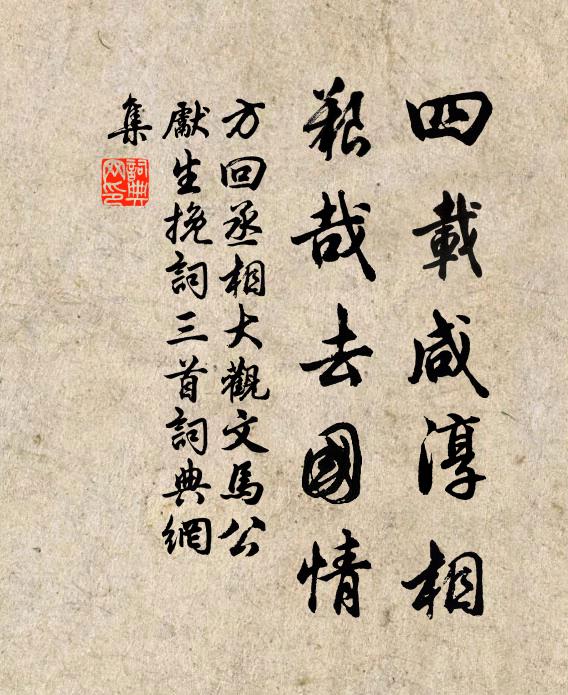 四載咸淳相
艱哉去國情
方回丞相大觀文馬公
獻生挽詞三首詞典網
集
詞典網印